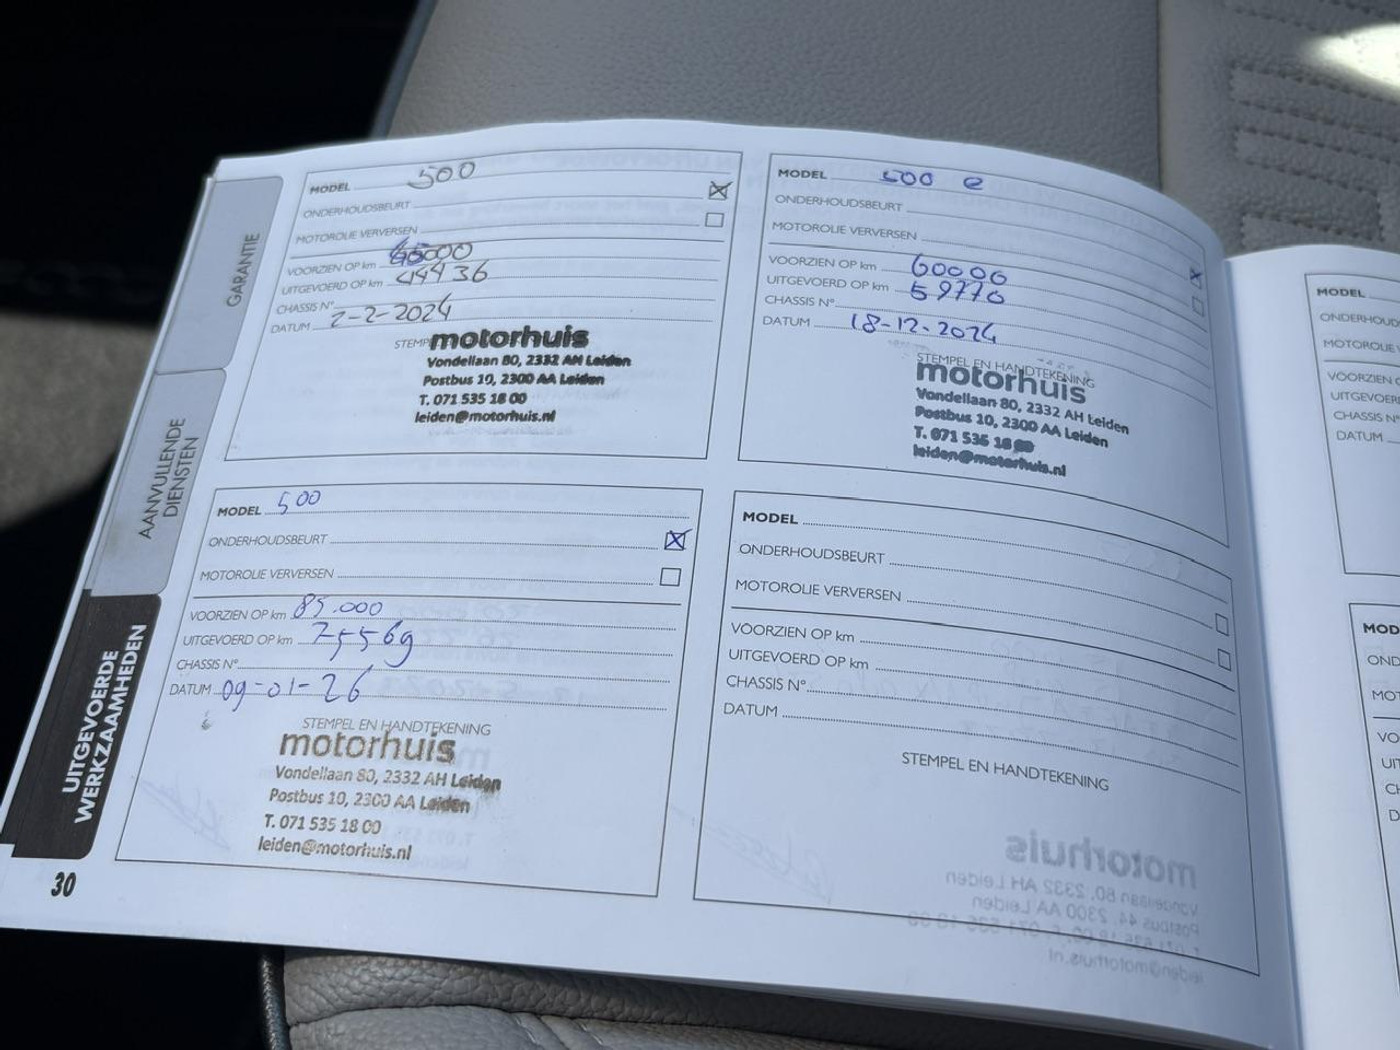 GARANTIE
AANVULLENDE
DIENSTEN
UITGEVOERDE
WERKZAAMHEDEN
MODEL 500
ONDERHOUDSBEURT
MOTOROLIE VERVERSEN
VOORZIEN OP km 45000
UITGEVOERD OP km 44436
CHASSIS N°
DATUM 2-2-2024
STEMP
motorhuis
Vondellaan 80, 2332 AH Leiden
Postbus 10, 2300 AA Leiden
T. 071 535 18 00
leiden@motorhuis.nl
MODEL 500 e
ONDERHOUDSBEURT
MOTOROLIE VERVERSEN
VOORZIEN OP km 60000
UITGEVOERD OP km 59770
CHASSIS N°
DATUM 18-12-2024
STEMPEL EN HANDTEKENING
motorhuis
Vondellaan 80, 2332 AH Leiden
Postbus 10, 2300 AA Leiden
T. 071 535 18 00
leiden@motorhuis.nl
MODEL 500
ONDERHOUDSBEURT
MOTOROLIE VERVERSEN
VOORZIEN OP km 85.000
UITGEVOERD OP km 75569
CHASSIS N°
DATUM 09-01-26
STEMPEL EN HANDTEKENING
motorhuis
Vondellaan 80, 2332 AH Leiden
Postbus 10, 2300 AA Leiden
T. 071 535 18 00
leiden@motorhuis.nl
MODEL
ONDERHOUDSBEURT
MOTOROLIE VERVERSEN
VOORZIEN OP km
UITGEVOERD OP km
CHASSIS N°
DATUM
STEMPEL EN HANDTEKENING
30
MODEL
ONDERHOUDS
MOTOROLIE
VOORZIEN
UITGEVOER
CHASSIS N°
DATUM
MOD
OND
MOT
VO
UIT
CH
D